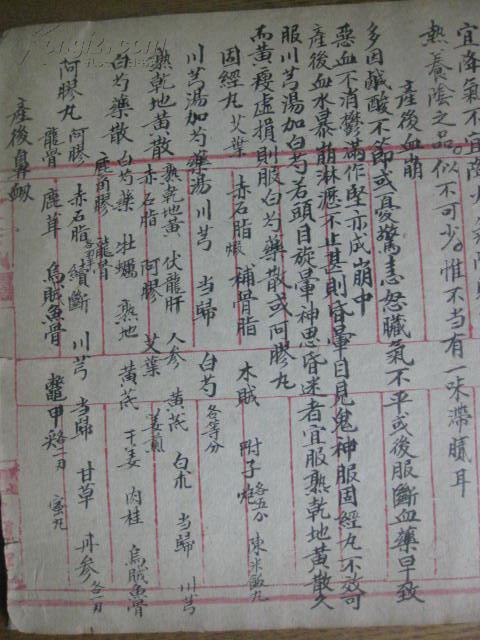 宜降氣不宜
熱養陰之品似不可少惟不当有一味滯膩耳
產後血崩
多因鹹酸不節或憂驚恚怒臟氣不平或後服斷血藥早致
惡血不消鬱滿作堅亦成崩中
產後血水暴崩淋瀝不止甚則昏暈目見鬼神服固經丸不效可
服川芎湯加白芍若頭目旋暈神思昏迷者宜服熟乾地黃散久
而黃瘦虛損則服白芍藥散或阿膠丸
固經丸 艾葉 赤石脂煅 補骨脂 木賊 附子炮各五分 陳米飯丸
川芎湯加芍藥湯 川芎 當歸 白芍各等分
熟乾地黃散 熟乾地黃 伏龍肝 人參 黃芪 白朮 當歸 川芎
赤石脂 阿膠 艾葉 姜煎
白芍藥散 白芍藥 牡蠣 熟地 黃芪 干姜 肉桂 烏賊魚骨
鹿角膠 龍骨
阿膠丸 阿膠 赤石脂 續斷 川芎 當歸 甘草 丹參各一刃
龍骨 鹿茸 烏賊魚骨 鱉甲炙各二刃 蜜丸
產後鼻衄